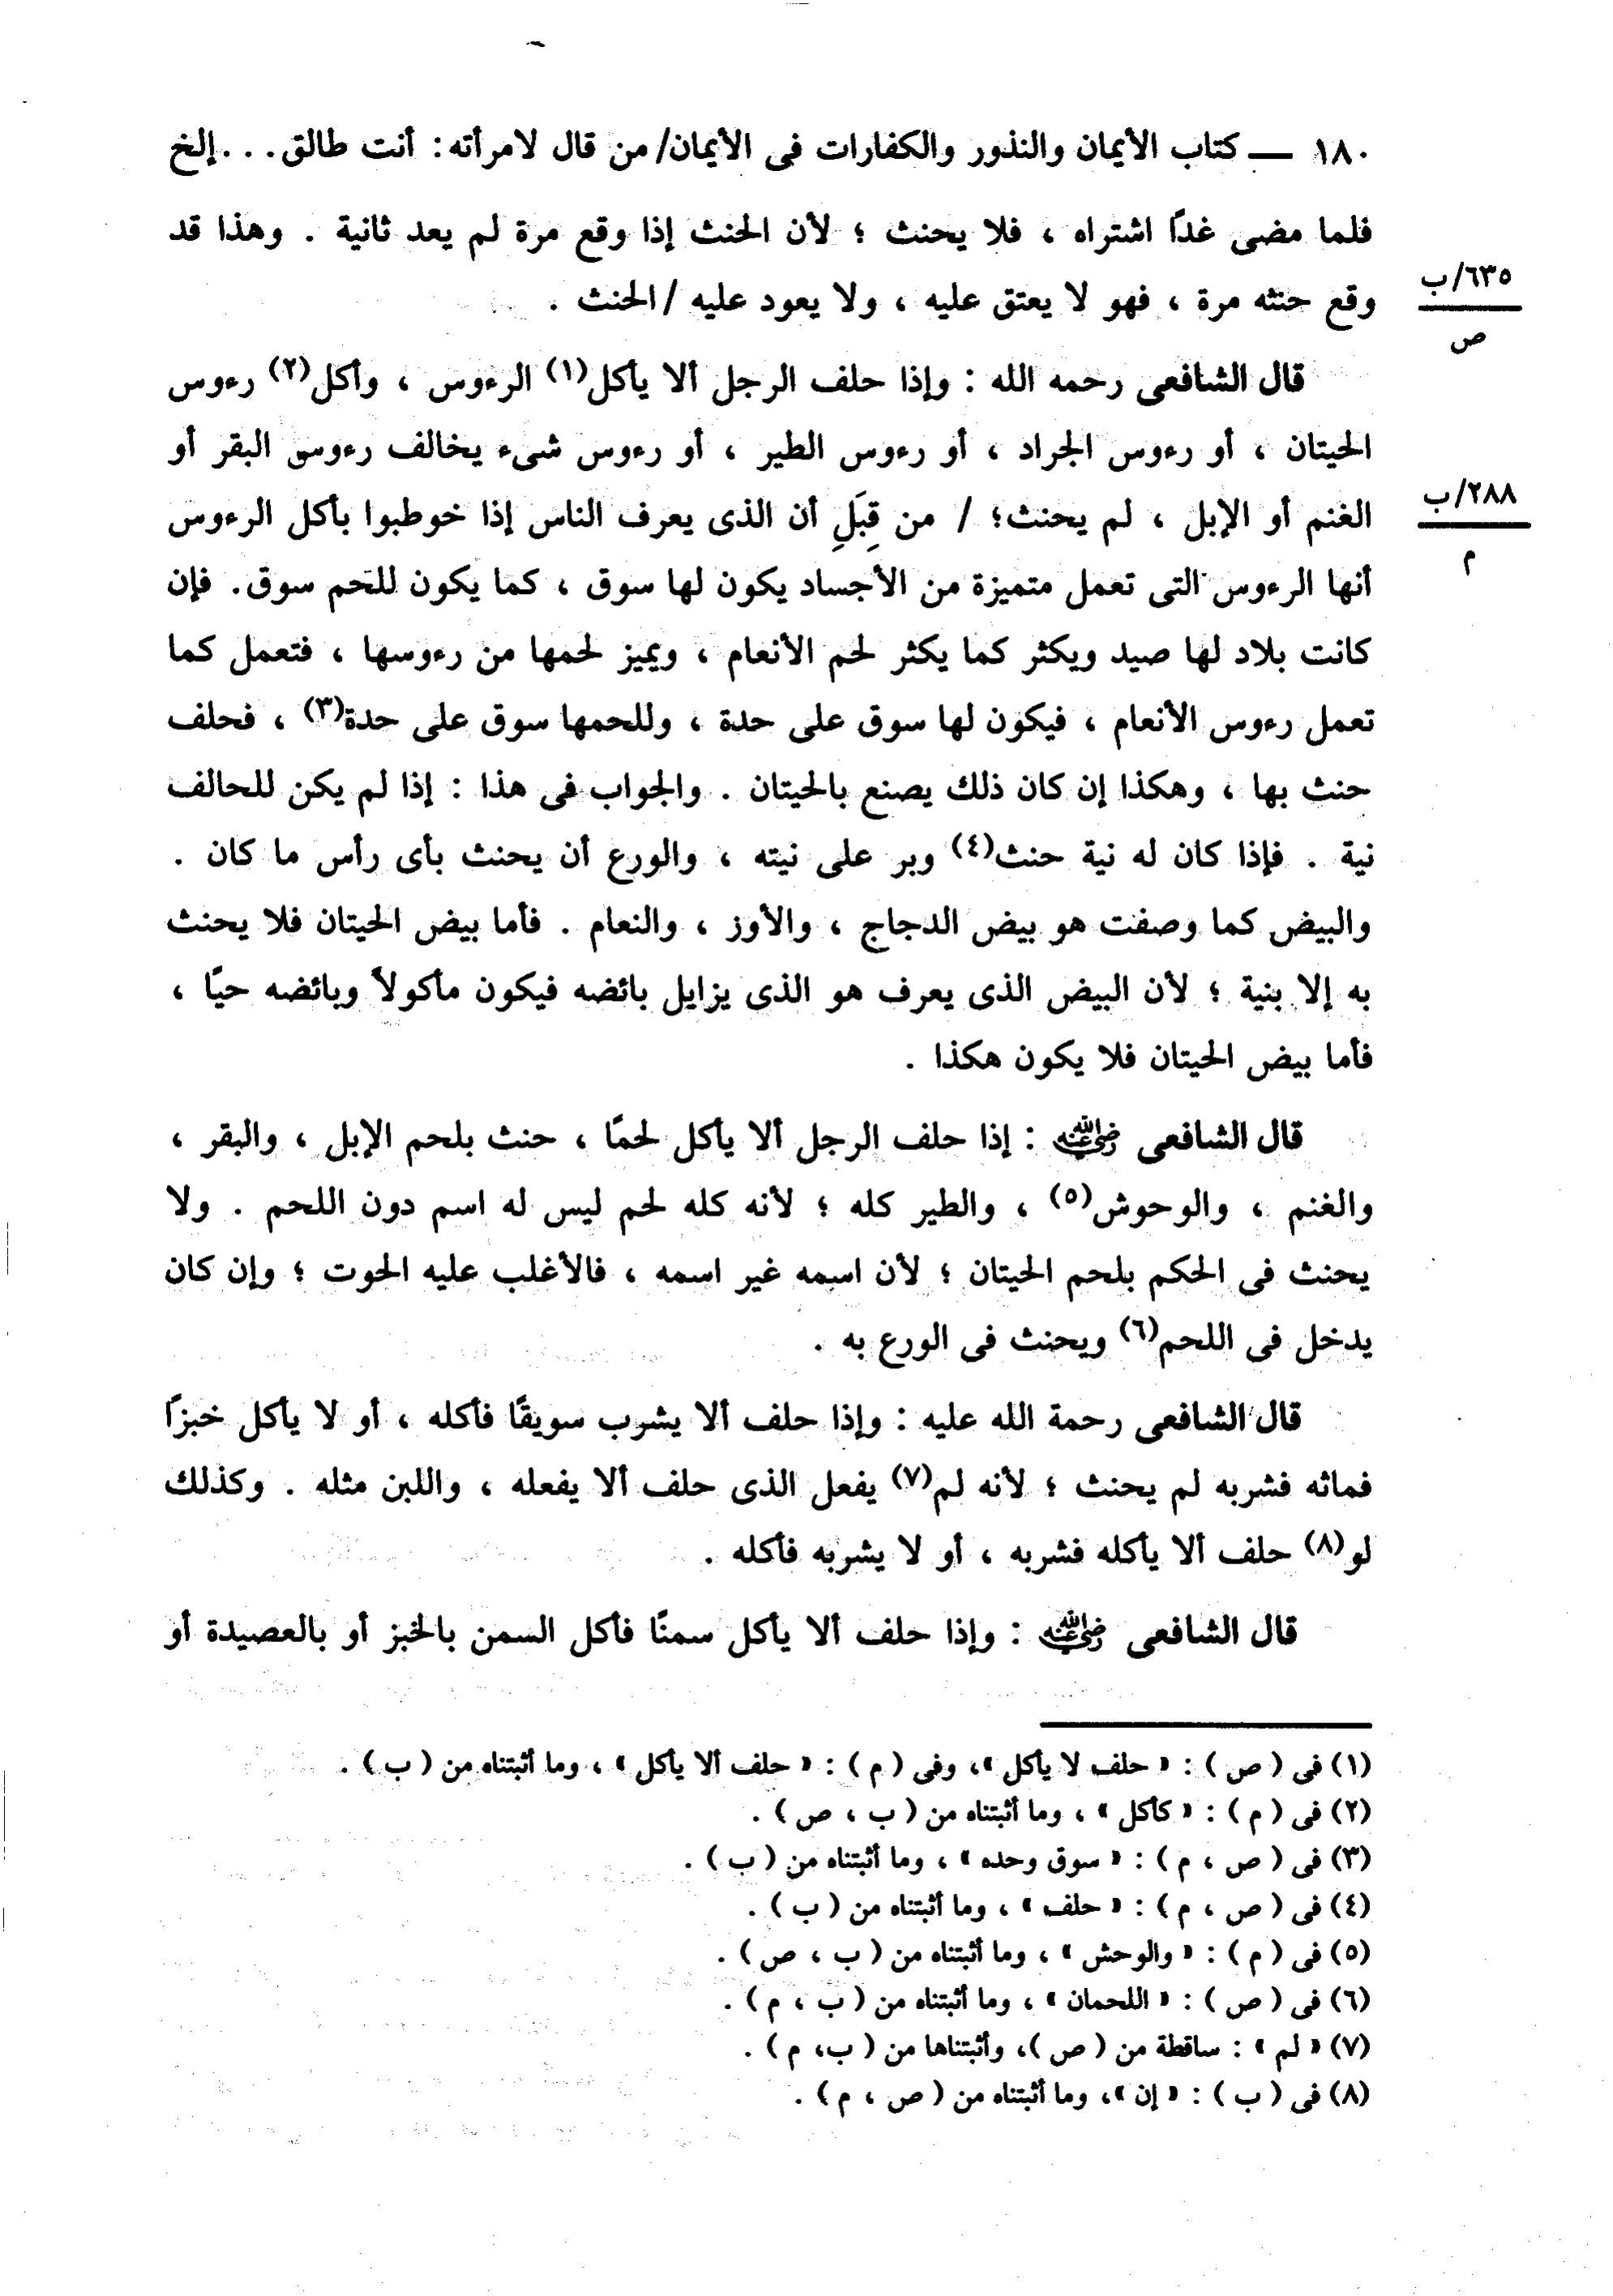 ١٨٠ — كتاب الأيمان والنذور والكفارات فى الأيمان/ من قال لامرأته: أنت طالق... إلخ
فلما مضى غدًا اشتراه ، فلا يحنث ؛ لأن الحنث إذا وقع مرة لم يعد ثانية . وهذا قد
٦٣٥/ب
ص
وقع حنثه مرة ، فهو لا يعتق عليه ، ولا يعود عليه / الحنث .
قال الشافعى رحمه الله : وإذا حلف الرجل ألا يأكل(١) الرءوس ، وأكل(٢) رءوس
الحيتان ، أو رءوس الجراد ، أو رءوس الطير ، أو رءوس شىء يخالف رءوس البقر أو
٢٨٨/ب
م
الغنم أو الإبل ، لم يحنث؛ / من قِبَلِ أن الذى يعرف الناس إذا خوطبوا بأكل الرءوس
أنها الرءوس التى تعمل متميزة من الأجساد يكون لها سوق ، كما يكون للحم سوق. فإن
كانت بلاد لها صيد ويكثر كما يكثر لحم الأنعام ، ويميز لحمها من رءوسها ، فتعمل كما
تعمل رءوس الأنعام ، فيكون لها سوق على حدة ، وللحمها سوق على حدة(٣) ، فحلف
حنث بها ، وهكذا إن كان ذلك يصنع بالحيتان . والجواب فى هذا : إذا لم يكن للحالف
نية . فإذا كان له نية حنث(٤) وبر على نيته ، والورع أن يحنث بأى رأس ما كان .
والبيض كما وصفت هو بيض الدجاج ، والأوز ، والنعام . فأما بيض الحيتان فلا يحنث
به إلا بنية ؛ لأن البيض الذى يعرف هو الذى يزايل بائضه فيكون مأكولاً وبائضه حيًا ،
فأما بيض الحيتان فلا يكون هكذا .
قال الشافعى رضي الله عنه : إذا حلف الرجل ألا يأكل لحمًا ، حنث بلحم الإبل ، والبقر ،
والغنم ، والوحوش(٥) ، والطير كله ؛ لأنه كله لحم ليس له اسم دون اللحم . ولا
يحنث فى الحكم بلحم الحيتان ؛ لأن اسمه غير اسمه ، فالأغلب عليه الحوت ؛ وإن كان
يدخل فى اللحم(٦) ويحنث فى الورع به .
قال الشافعى رحمة الله عليه : وإذا حلف ألا يشرب سويقًا فأكله ، أو لا يأكل خبزًا
فماثه فشربه لم يحنث ؛ لأنه لم(٧) يفعل الذى حلف ألا يفعله ، واللبن مثله . وكذلك
لو(٨) حلف ألا يأكله فشربه ، أو لا يشربه فأكله .
قال الشافعى رضي الله عنه : وإذا حلف ألا يأكل سمنًا فأكل السمن بالخبز أو بالعصيدة أو
(١) فى ( ص ) : « حلف لا يأكل »، وفى ( م ) : « حلف ألا يأكل » ، وما أثبتناه من ( ب ) .
(٢) فى ( م ) : « كأكل » ، وما أثبتناه من ( ب ، ص ) .
(٣) فى ( ص ، م ) : « سوق وحده » ، وما أثبتناه من ( ب ) .
(٤) فى ( ص ، م ) : « حلف » ، وما أثبتناه من ( ب ) .
(٥) فى ( م ) : « والوحش » ، وما أثبتناه من ( ب ، ص ) .
(٦) فى ( ص ) : « اللحمان » ، وما أثبتناه من ( ب ، م ) .
(٧) « لم » : ساقطة من ( ص )، وأثبتناها من ( ب، م ) .
(٨) فى ( ب ) : « إن »، وما أثبتناه من ( ص ، م ) .